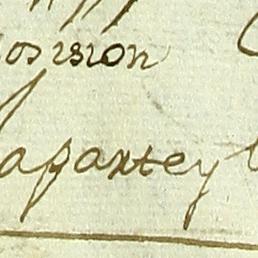 osision
apartey